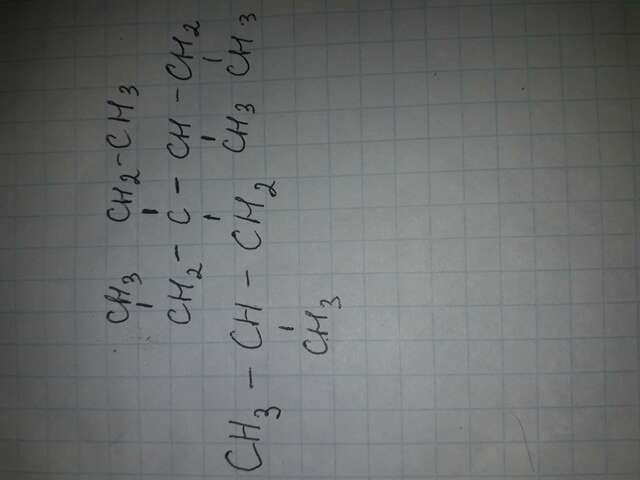 CH₃ CH₂-CH₃
CH₂-C-CH-CH₂
CH₃-CH-CH₂ CH₃ CH₃
CH₃